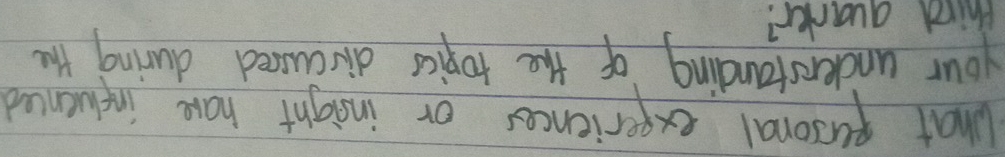 What personal experiences or insight have influenced
your understanding of the topics discussed during the
third quarter?